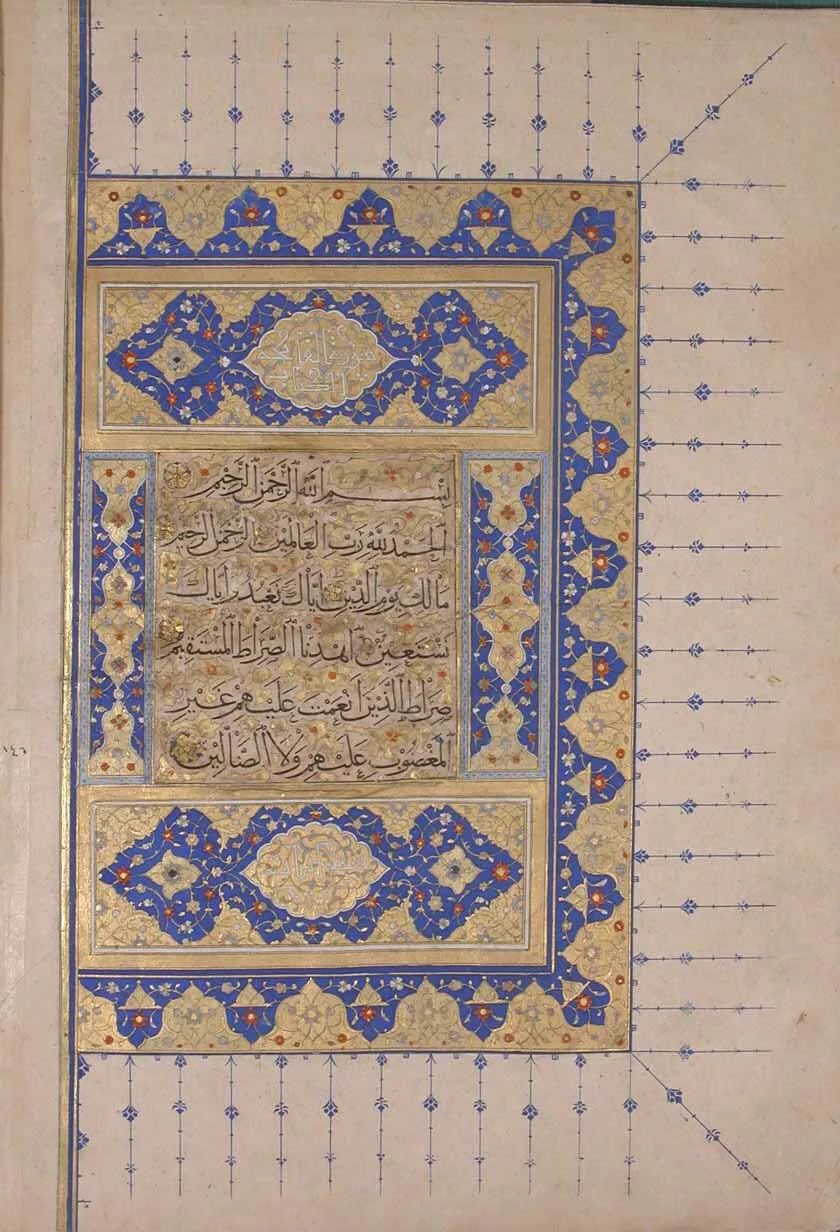 سورة الفاتحة
الكتاب
بسم الله الرحمن الرحيم
الحمد لله رب العالمين الرحمن الرحيم
مالك يوم الدين اياك نعبد واياك
نستعين اهدنا الصراط المستقيم
صراط الذين انعمت عليهم غير
المغضوب عليهم ولا الضالين